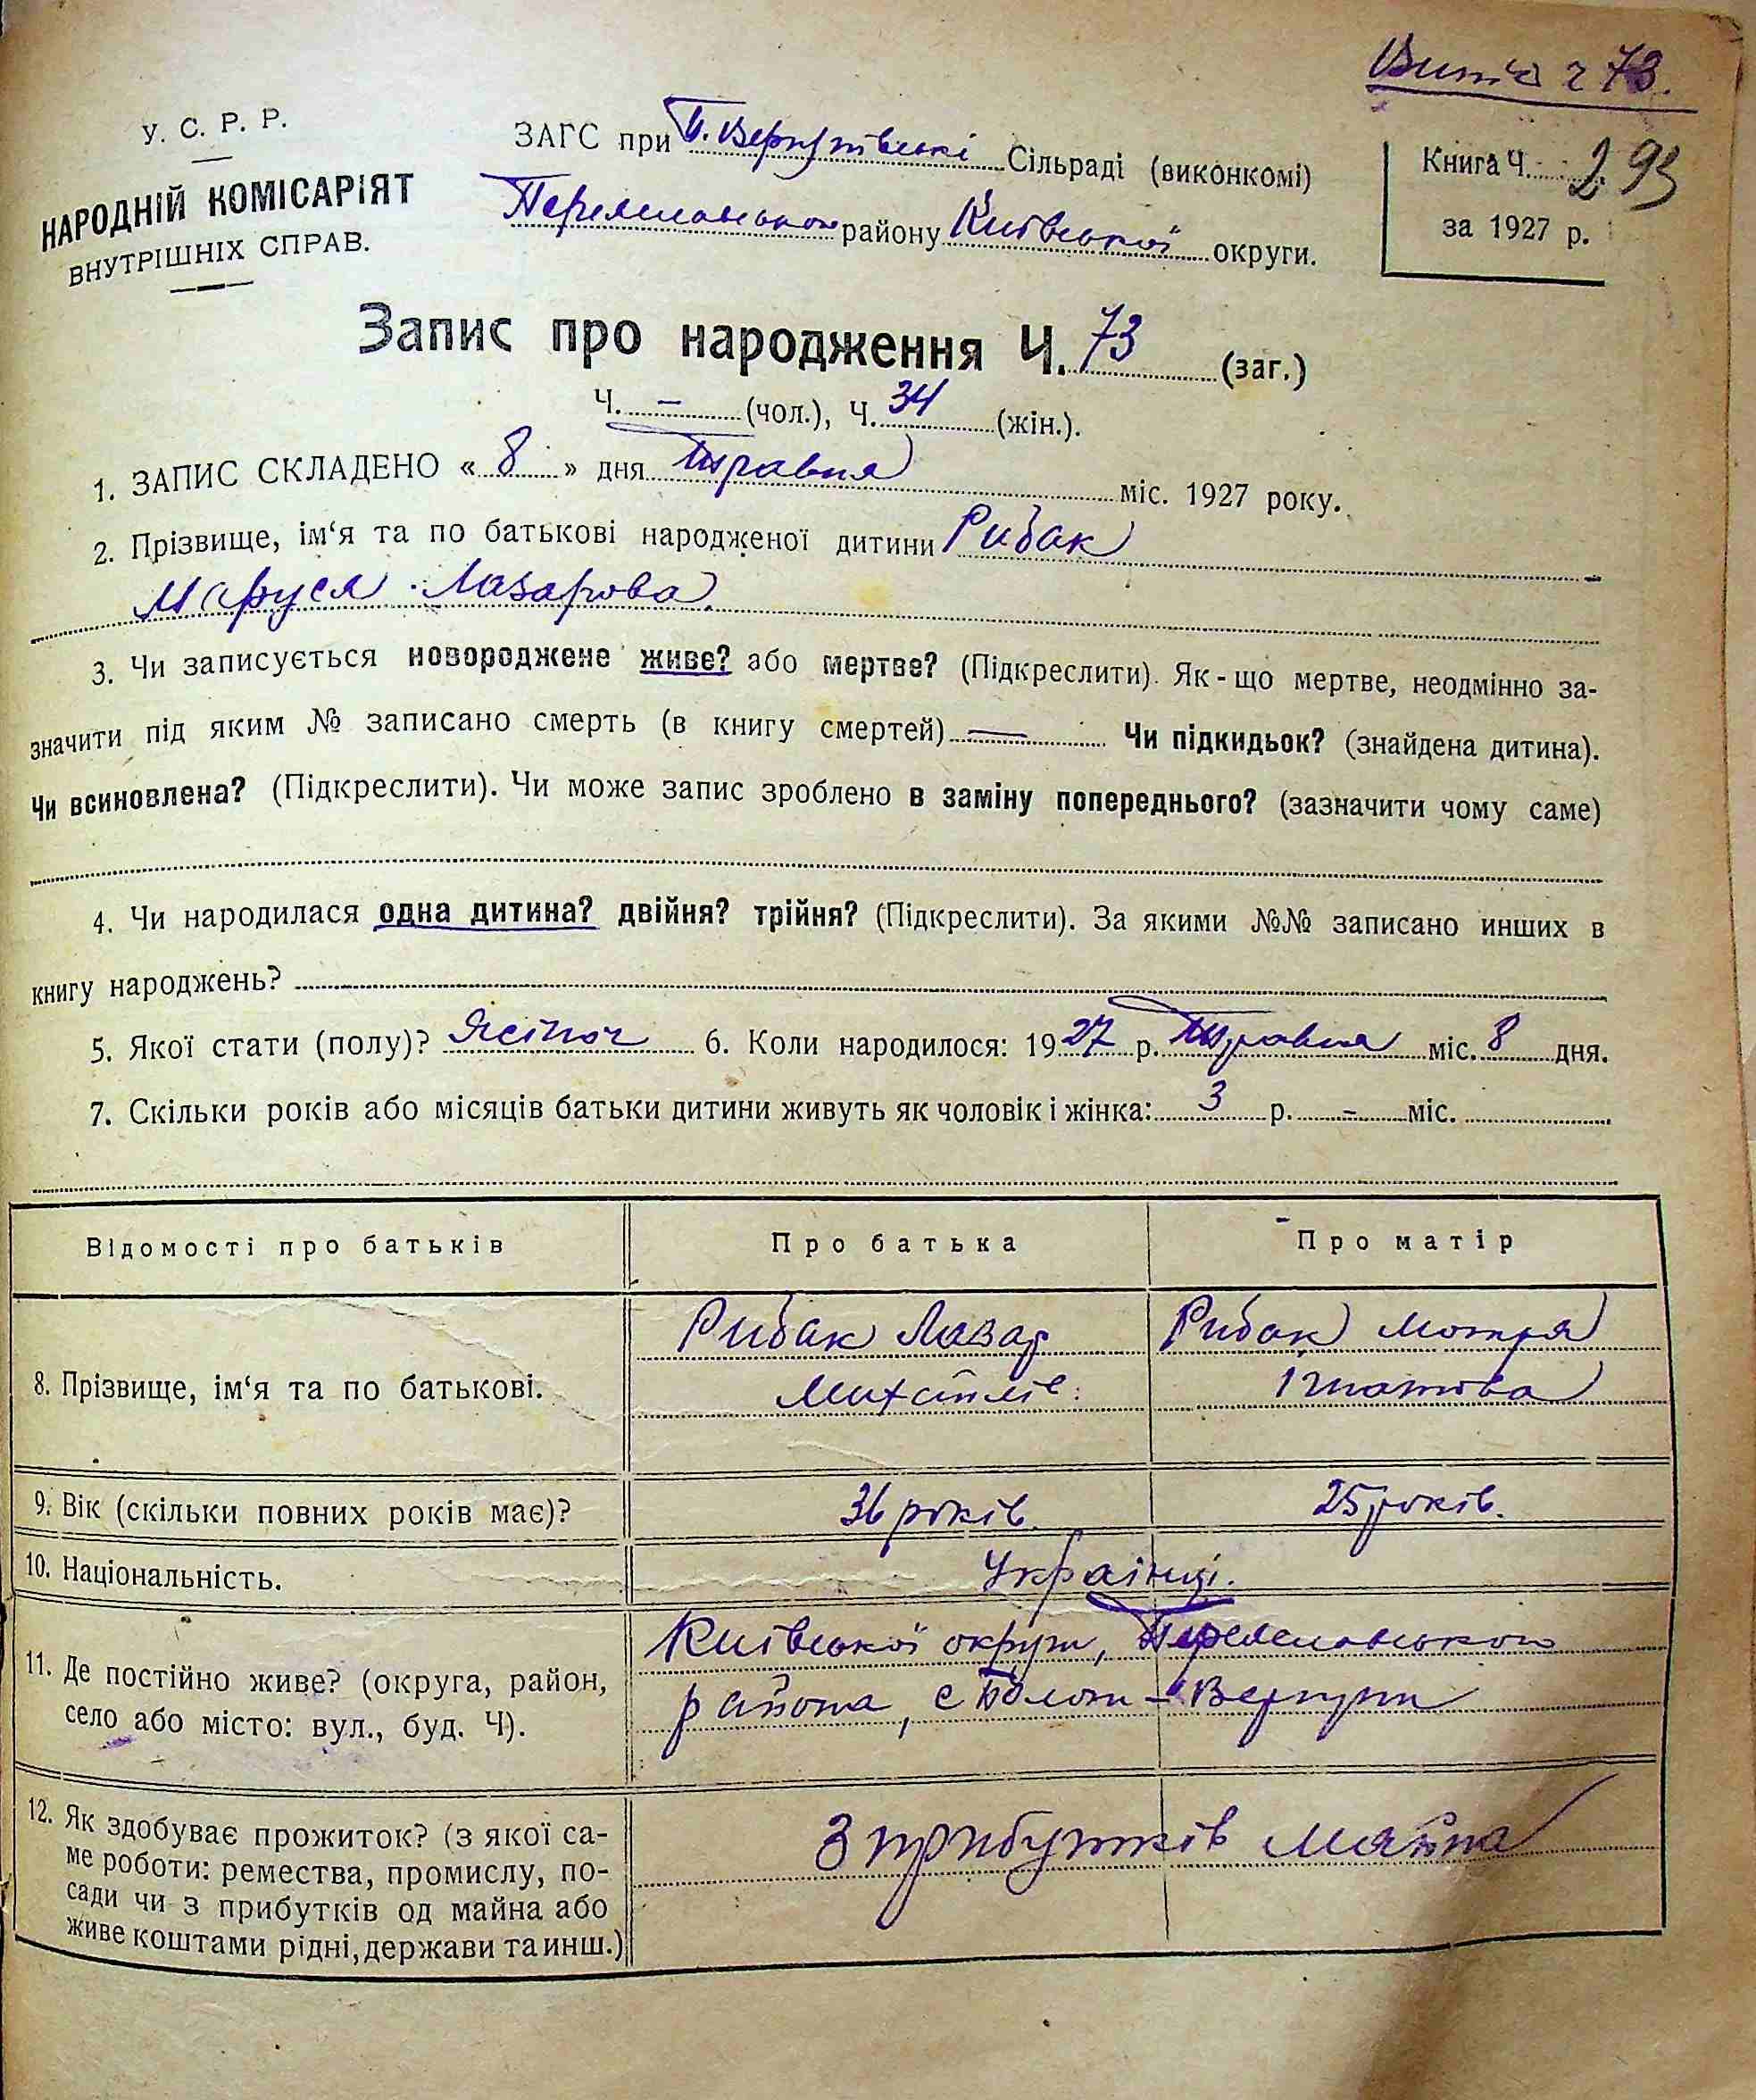 Витяг 73.
У. С. Р. Р.
НАРОДНІЙ КОМІСАРІЯТ
ВНУТРІШНІХ СПРАВ.
ЗАГС при П. Вергунівські Сільраді (виконкомі)
Переяславського району Київської округи.
Книга Ч. 293
за 1927 р.
Запис про народження Ч. 73 (заг.)
Ч. – (чол.), Ч. 34 (жін.).
1. ЗАПИС СКЛАДЕНО « 8 » дня травня міс. 1927 року.
2. Прізвище, ім‘я та по батькові народженої дитини Рибак
Маруся Лазарова.
3. Чи записується новороджене живе? або мертве? (Підкреслити). Як-що мертве, неодмінно за-
значити під яким № записано смерть (в книгу смертей) — Чи підкидьок? (знайдена дитина).
Чи всиновлена? (Підкреслити). Чи може запис зроблено в заміну попереднього? (зазначити чому саме)
4. Чи народилася одна дитина? двійня? трійня? (Підкреслити). За якими №№ записано инших в
книгу народжень?
5. Якої стати (полу)? Жіноч 6. Коли народилося: 1927 р. травня міс. 8 дня.
7. Скільки років або місяців батьки дитини живуть як чоловік і жінка: 3 р. – міс.
Відомості про батьків Про батька Про матір
8. Прізвище, ім‘я та по батькові. Рибак Лазар Рибак Мотря
Михайлів. Ігнатова
9. Вік (скільки повних років має)? 36 років. 25 років.
10. Національність. Українці.
11. Де постійно живе? (округа, район, Київської округи, Переяславського
село або місто: вул., буд. Ч). района, с Полог-Вергуни
12. Як здобуває прожиток? (з якої са- З прибутків майна
ме роботи: ремества, промислу, по-
сади чи з прибутків од майна або
живе коштами рідні, держави та инш.)